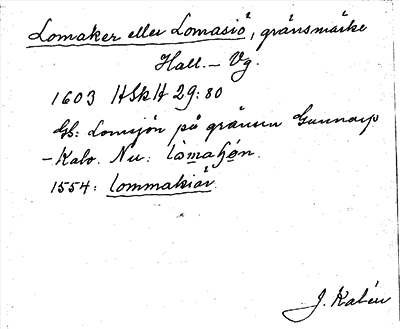 Lomaker eller Lomasiö, gränsmärke
Hall. – Vg.
1603 HSkH 29:80
Gb: Lomsjön på gränsen Gunnarp
– Kalv. Nu: lòmahøn.
1554: lommakiär
J. Kalén